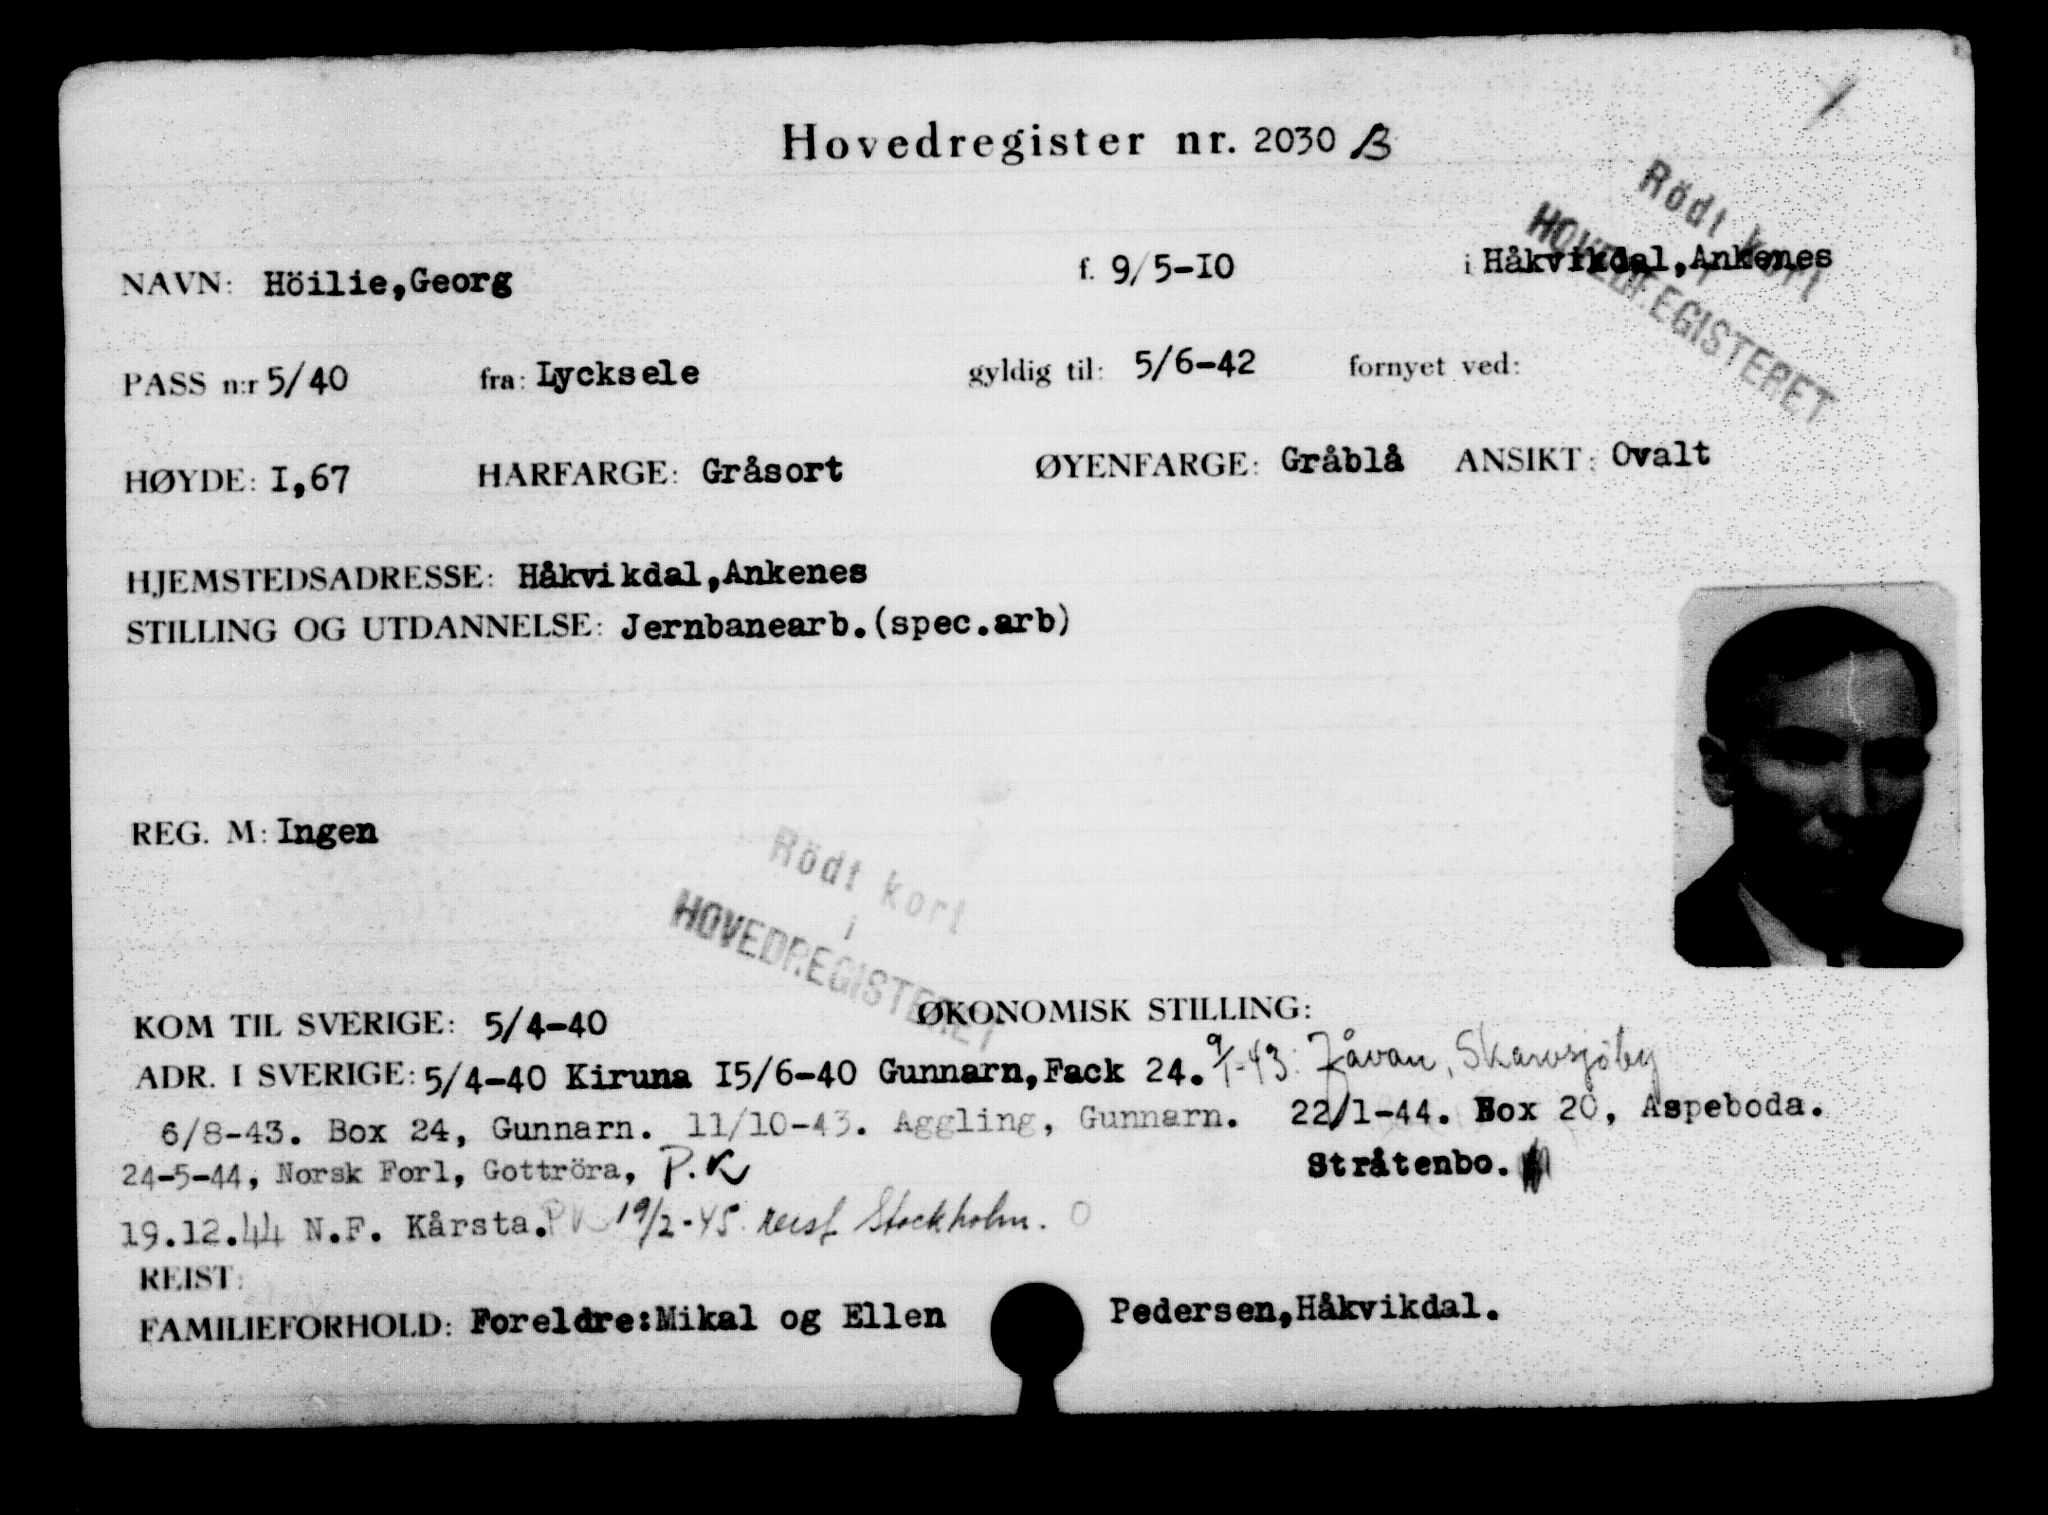 Hovedregister nr. 2030 B
Rödt kort
i
HOVEDREGISTERET
NAVN: Höilie,Georg f. 9/5-I0 i Håkvikdal,Ankenes
PASS n:r 5/40 fra: Lycksele gyldig til: 5/6-42 fornyet ved:
HØYDE: I,67 HARFARGE: Gråsort ØYENFARGE: Gråblå ANSIKT: Ovalt
HJEMSTEDSADRESSE: Håkvikdal,Ankenes
STILLING OG UTDANNELSE: Jernbanearb.(spec.arb)
REG. M: Ingen
Rödt kort
i
HOVEDREGISTERET
KOM TIL SVERIGE: 5/4-40 ØKONOMISK STILLING:
ADR. I SVERIGE: 5/4-40 Kiruna I5/6-40 Gunnarn,Fack 24. 9/1-43: Skarvsjöby
6/8-43. Box 24, Gunnarn. 11/10-43. Aggling, Gunnarn. 22/1-44. Box 20, Aspeboda.
24-5-44, Norsk Forl, Gottröra, P.K Stråtenbo.
19.12.44 N.F. Kårsta. PK 19/2-45 reist Stockholm. O
REIST:
FAMILIEFORHOLD: Foreldre:Mikal og Ellen Pedersen,Håkvikdal.